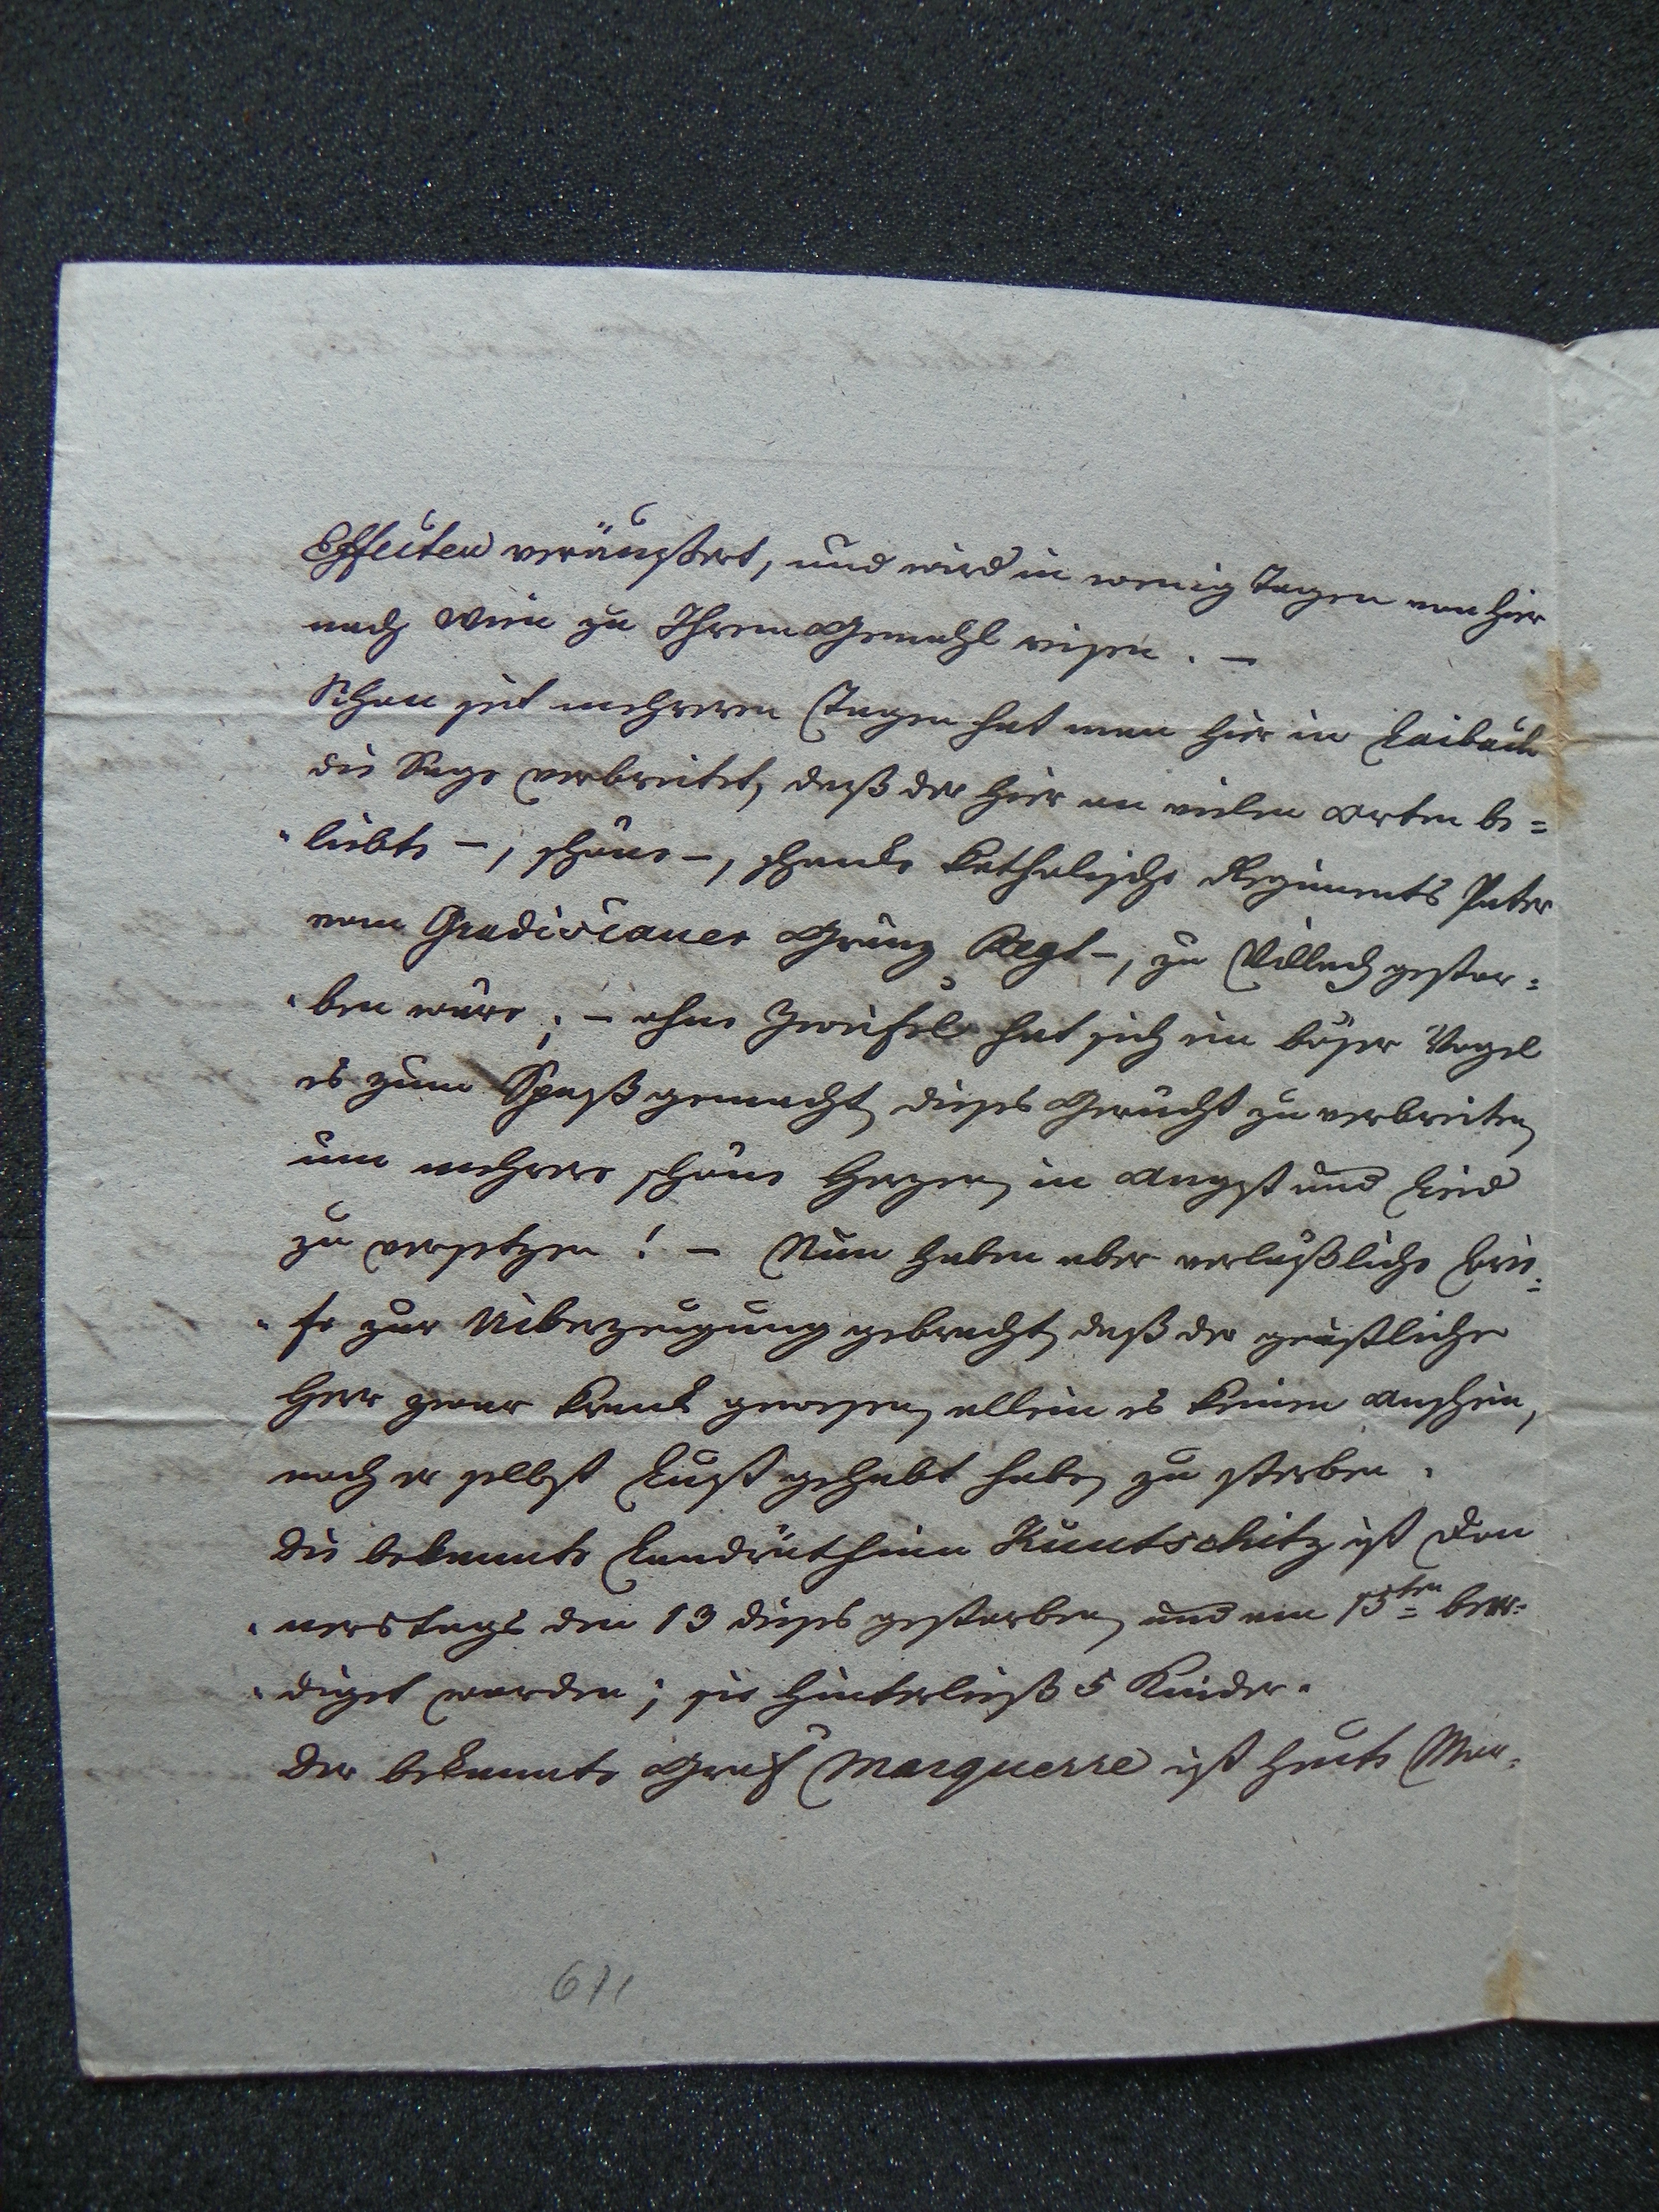 Effecten veräußert, und wird in wenig Tagen von hier
nach Wien zu Ihrem Gemahl reisen. –
Schon seit mehreren Tagen hat man hier in Laibach
die Sage verbreitet, daß der hier an vielen Orten be=
"liebte –, schöne –, schlanke katholische Regiments Pater
vom Gradiscaner Gränz Regt –, zu Villach gestor=
"ben wäre; – ohne Zweifel hat sich ein böser Vogel
es zum Spaß gemacht, dieses Gerücht zu verbreiten,
um mehrere schöne Herzen, in Angst und Leid
zu versetzen! – Nun haben aber verläßliche Brie=
"fe zur Uiberzeugung gebracht, daß der geistliche
Herr zwar krank gewesen, allein es keinen Anschein,
noch er selbst Lust gehabt habe, zu sterben.
Die bekannte Landräthinn Kuntschitz ist Don
"nerstags den 13 dieses gestorben, und am 15ten beer=
"diget worden; sie hinterließ 5 Kinder.
Der bekannte Graf Marquerre ist heute Mor=
671